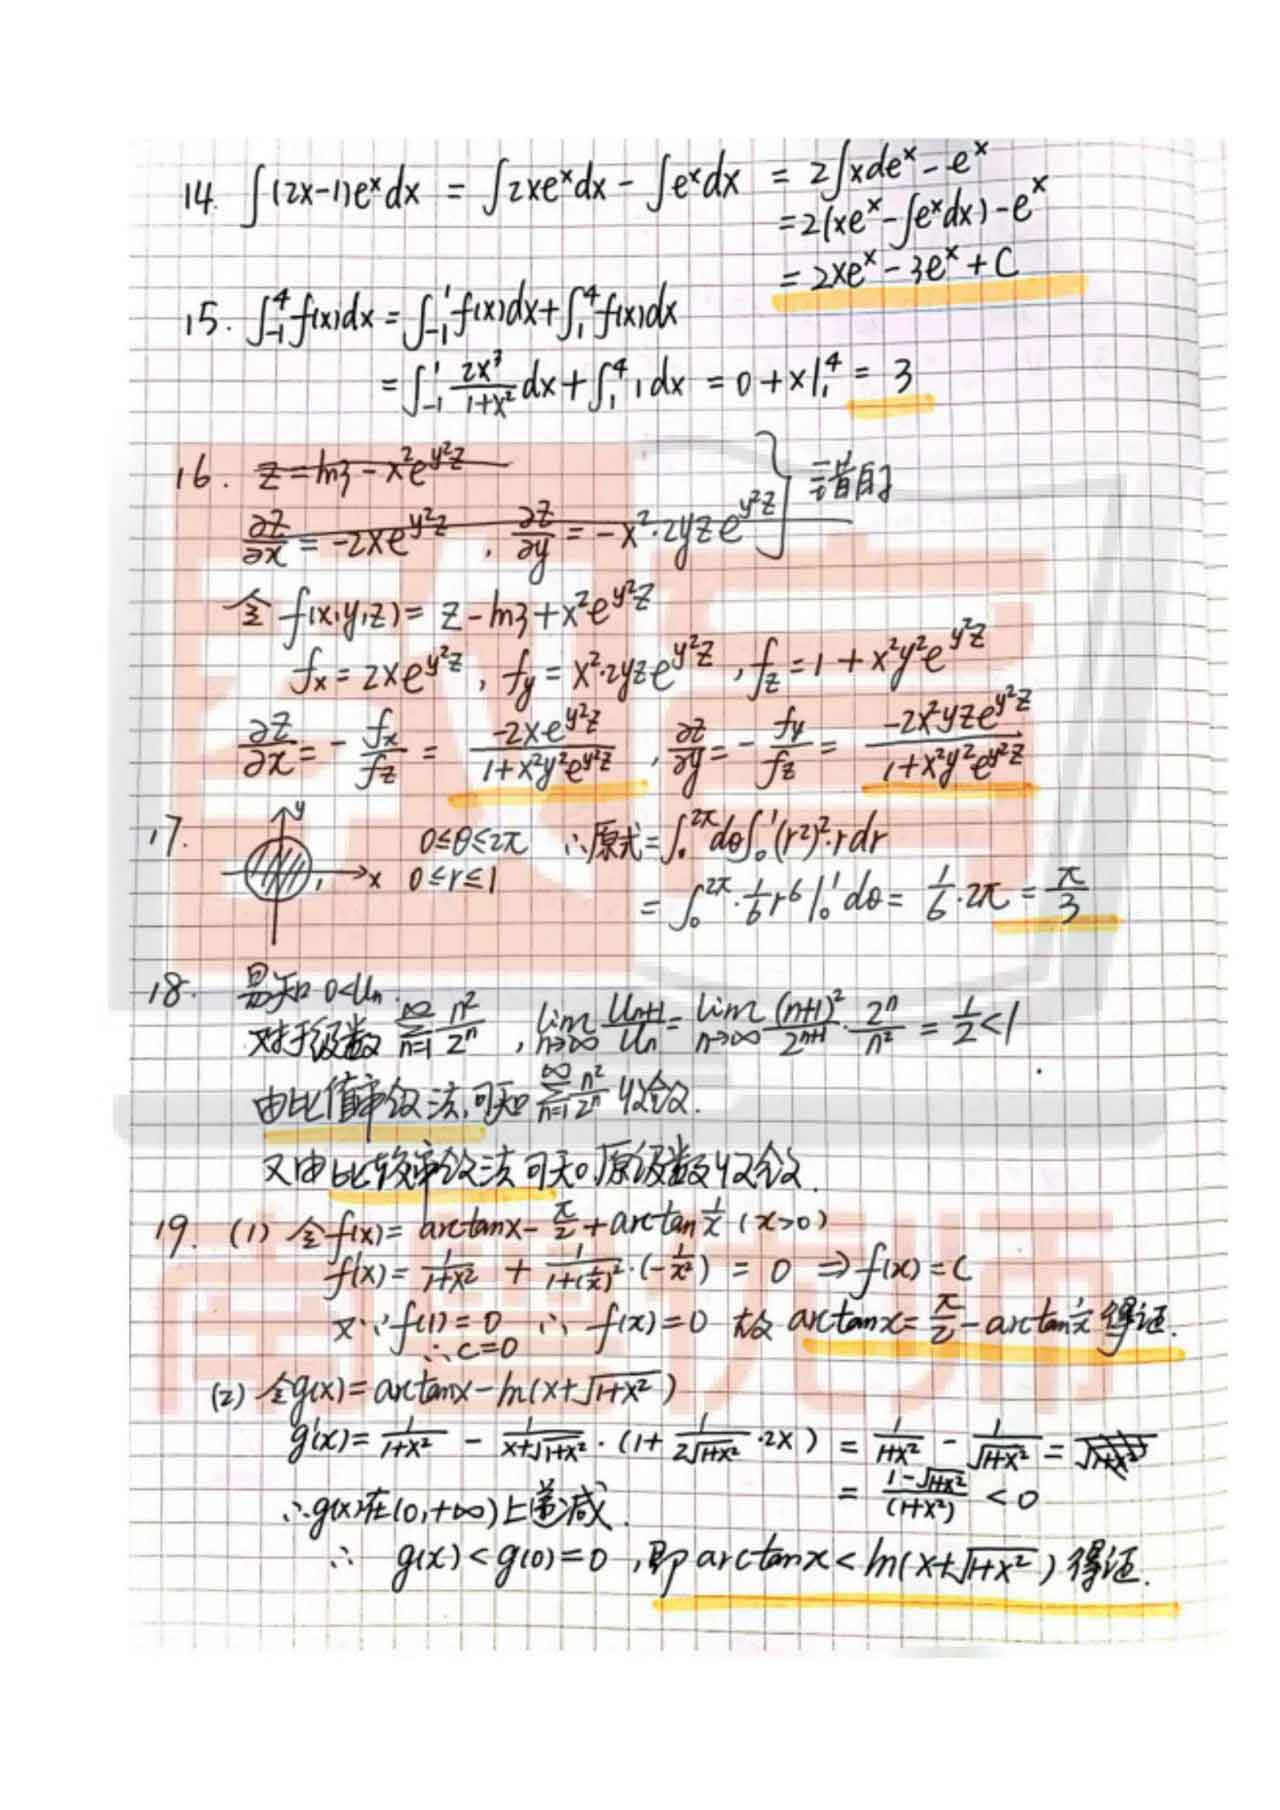 14. ∫(2x-1)e^x dx = ∫2xe^x dx - ∫e^x dx = 2∫xde^x - e^x
= 2(xe^x - ∫e^x dx) - e^x
= 2xe^x - 3e^x + C
15. ∫_{-1}^4 f(x)dx = ∫_{-1}^1 f(x)dx + ∫_1^4 f(x)dx
= ∫_{-1}^1 \frac{2x^3}{1+x^2} dx + ∫_1^4 1dx = 0 + x|_1^4 = 3
16. z = ln3 - x^2e^{y^2z}
∂z/∂x = -2xe^{y^2z}, ∂z/∂y = -x^2·2yze^{y^2z} } 错的
令 f(x,y,z) = z - ln3 + x^2e^{y^2z}
f_x = 2xe^{y^2z}, f_y = x^2·2yze^{y^2z}, f_z = 1 + x^2y^2e^{y^2z}
∂z/∂x = -\frac{f_x}{f_z} = \frac{-2xe^{y^2z}}{1+x^2y^2e^{y^2z}}, ∂z/∂y = -\frac{f_y}{f_z} = \frac{-2x^2yze^{y^2z}}{1+x^2y^2e^{y^2z}}
17. y x 1 0≤θ≤2π ∴原式 = ∫_0^{2π} dθ∫_0^1 (r^2)^2·rdr
0≤r≤1
= ∫_0^{2π}·\frac{1}{6}r^6|_0^1 dθ = \frac{1}{6}·2π = \frac{π}{3}
18. 易知 0<U_n.
对于级数 \sum_{n=1}^∞ \frac{n^2}{2^n}, \lim_{n→∞} \frac{U_{n+1}}{U_n} = \lim_{n→∞} \frac{(n+1)^2}{2^{n+1}}·\frac{2^n}{n^2} = \frac{1}{2} < 1
由比值审敛法,可知 \sum_{n=1}^∞ \frac{n^2}{2^n} 收敛.
又由比较审敛法可知原级数收敛.
19. (1) 令f(x) = arctanx - \frac{π}{2} + arctan\frac{1}{x} (x>0)
f'(x) = \frac{1}{1+x^2} + \frac{1}{1+(\frac{1}{x})^2}·(-\frac{1}{x^2}) = 0 ⇒ f(x) = C
又∵f(1) = 0 ∴ f(x) = 0 故 arctanx = \frac{π}{2} - arctan\frac{1}{x} 得证.
∴ c=0
(2) 令g(x) = arctanx - ln(x+\sqrt{1+x^2})
g'(x) = \frac{1}{1+x^2} - \frac{1}{x+\sqrt{1+x^2}}·(1+\frac{1}{2\sqrt{1+x^2}}·2x) = \frac{1}{1+x^2} - \frac{1}{\sqrt{1+x^2}} =
= \frac{1-\sqrt{1+x^2}}{(1+x^2)} < 0
∴g(x)在(0,+∞)上递减.
∴ g(x) < g(0) = 0, 即 arctanx < ln(x+\sqrt{1+x^2}) 得证.